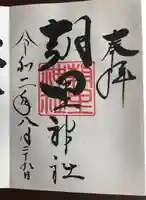 奉拝
朝里神社
令和二年八月二十九日